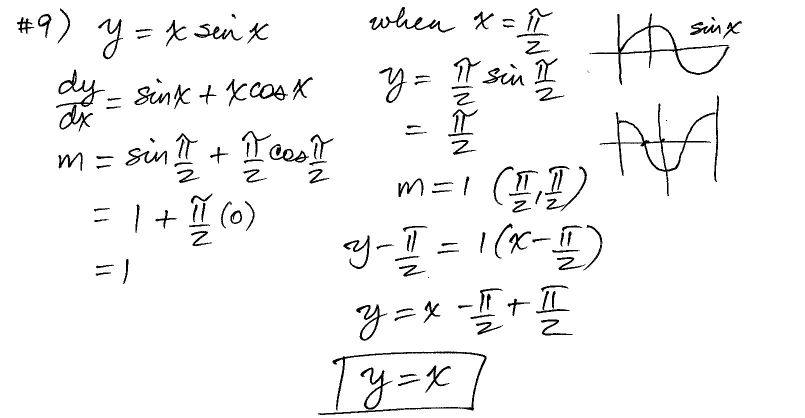 #9) y = x sin x
dy/dx = sinx + xcosx
m = sin π/2 + π/2 cos π/2
= 1 + π/2 (0)
= 1
when x = π/2
y = π/2 sin π/2
= π/2
m = 1 (π/2, π/2)
y - π/2 = 1(x - π/2)
y = x - π/2 + π/2
y = x
sinx